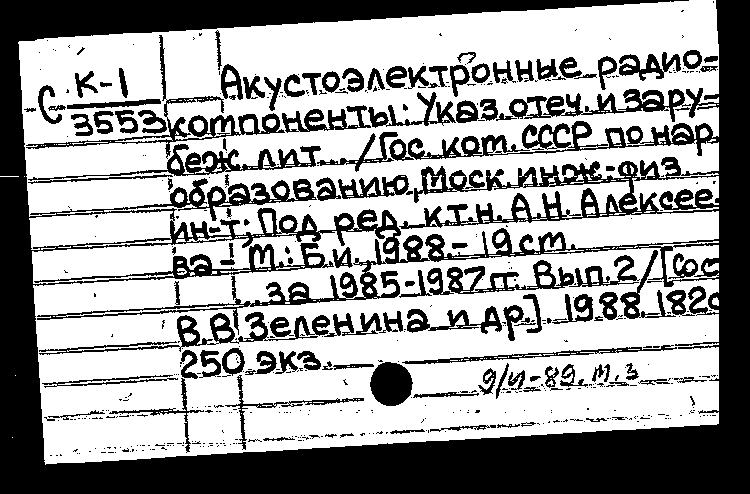 С К-1
3553
Акустоэлектронные радио-
компоненты: Указ. отеч. и зару-
беж. лит... /Гос. ком. СССР по нар.
образованию, Моск. инж.-физ.
ин-т; Под ред. к.т.н. А.Н. Алексее-
ва.- М.: Б.и., 1988.- 19 ст.
...за 1985-1987 гг. Вып.2 /[Сос
В.В. Зеленина и др.]. 1988. 182с
250 экз.
9/и-89. М. з